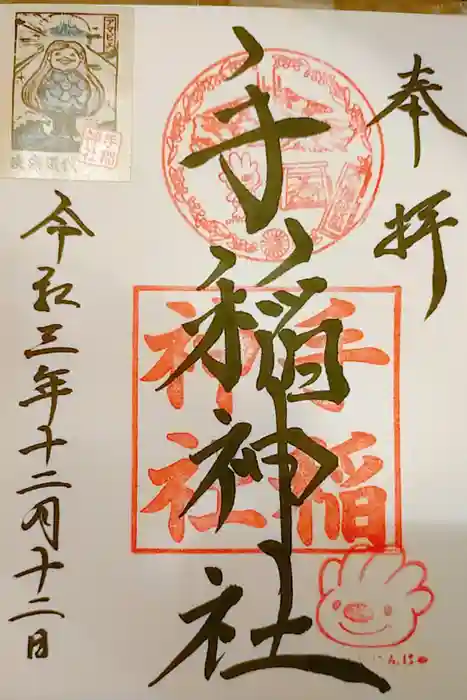 奉拝
手稲神社
手稲
神社
令和三年十二月十二日
アマビエ